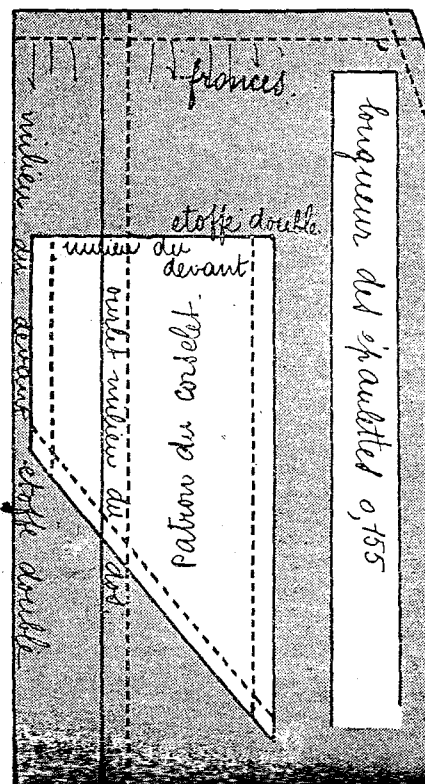 fronces.
longueur des épaulettes 0,155
etoffe double
milieu du
devant
ourlet milieu du dos.
Patron du corselet.
milieu du devant etoffe double